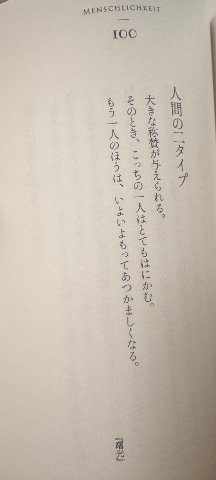 MENSCHLICHKEIT
100
人間の二タイプ
大きな称賛が与えられる。
そのとき、こっちの一人はとてもはにかむ。
もう一人のほうは、いよいよもってあつかましくなる。
『曙光』